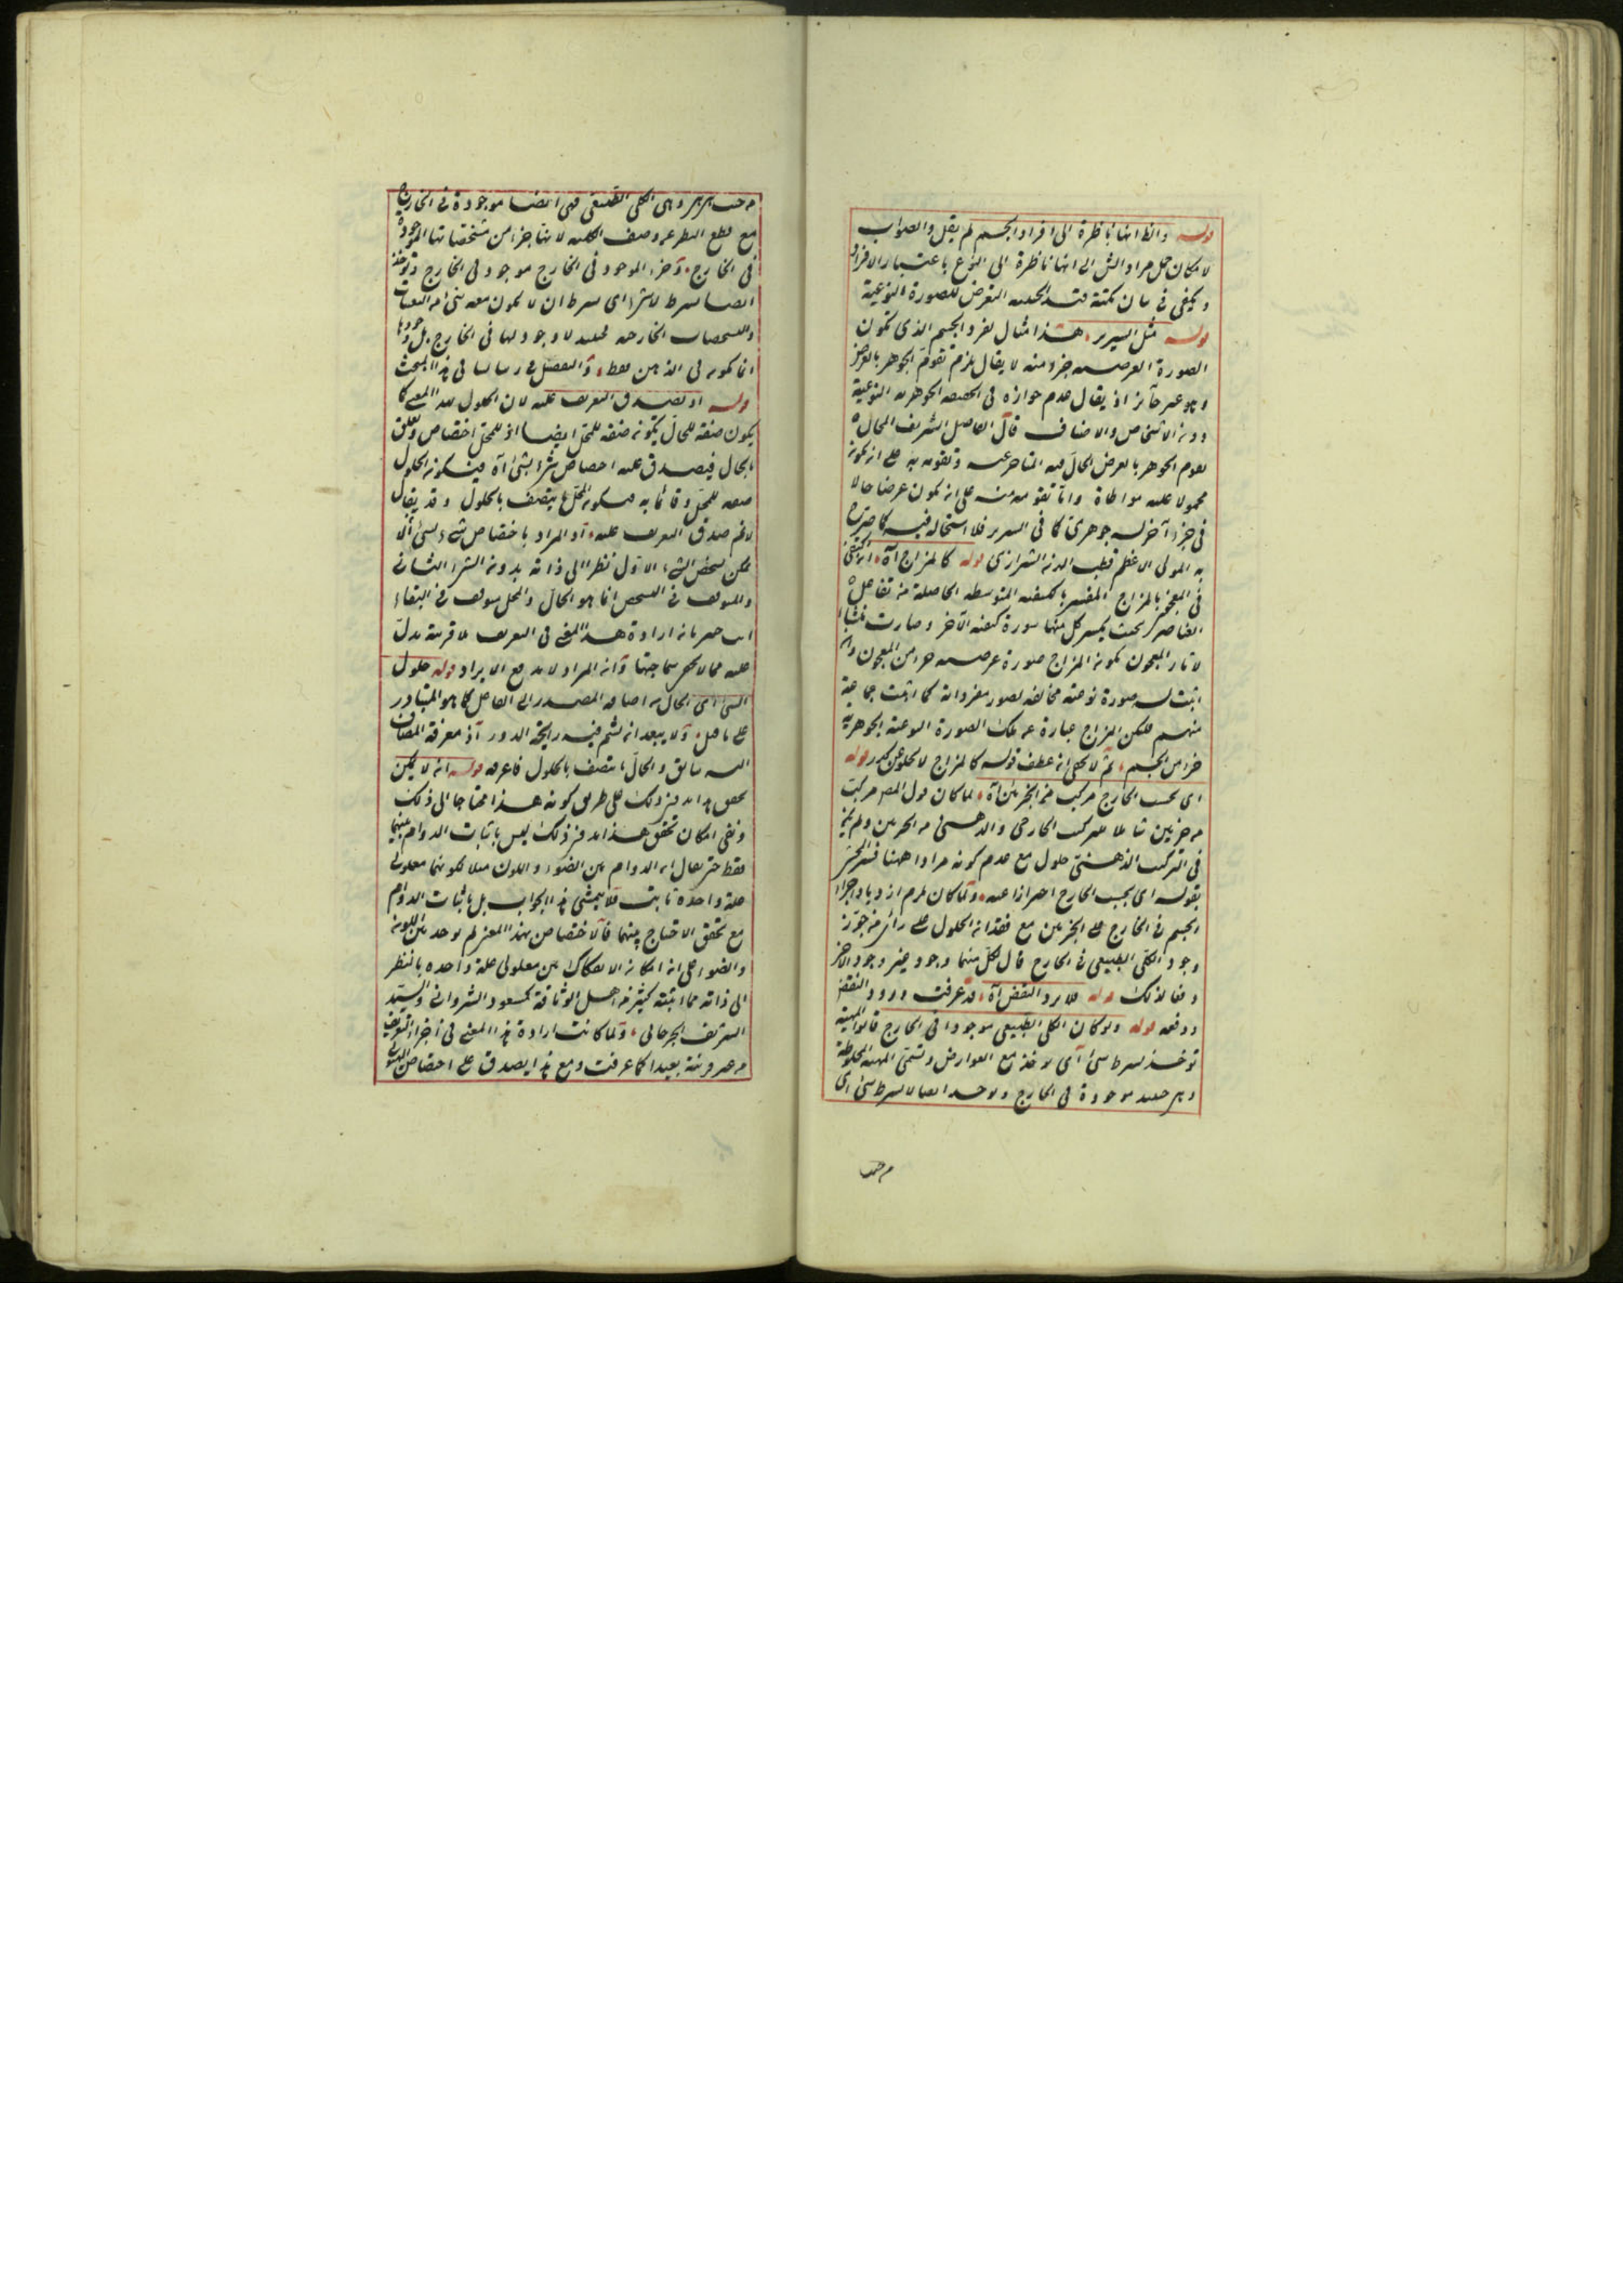 قوله والظ انها ناظرة الى افراد الجسم لم يقل والصواب
لامكان حمل مراد الش الى انها ناظرة الى النوع باعتبار الافراد
ويكفى فى بيان نكتة قيد الحيثية التعرض للصورة النوعية
قوله مثل السرير هذا مثال لفرد الجسم الذى تكون
الصورة العرضية جزء منه لا يقال يلزم تقوم الجوهر بالعرض
وهو غير جائز اذ يقال عدم جوازه فى الحقيقة الجوهرية النوعية
دون الاشخاص والاصناف قال الفاضل الشريف المحال
تقوم الجوهر بالعرض الحال فيه المتأخر عنه وتقومه به على ان يكون
محمولا عليه مواطاة واما تقومه منه على ان يكون عرضا حالا
فى جزء آخر له جوهرى كما فى السرير فلا استحالة فيه كما صرح
به المولى الاعظم قطب الدين الشيرازى قوله كالمزاج آه اكتفى
فى المعجون بالمزاج المفسر بالكيفية المتوسطة الحاصلة من تفاعل
العناصر بحيث يكسر كل منها سورة كيفية الآخر وصارت منشأ
لآثار المعجون بكون المزاج صورة عرضية جزء من المعجون وان
اثبت له صورة نوعية مخالفة لصور مفرداته كما اثبت جماعة
منهم فليكن المزاج عبارة عن تلك الصورة النوعية الجوهرية
جزء من الجسم ثم لا يخفى ان عطف قوله كالمزاج لا يخلو عن كدر قوله
اى بحسب الخارج مركب من الجزئين آه لما كان قول المص مركب
من جزئين شاملا للتركيب الخارجى والذهنى من الجزئين ولم يكن
فى التركيب الذهنى حلول مع عدم كونه مرادا ههنا فسر الجزئين
بقوله اى بحسب الخارج احترازا عنه ولما كان يلزم ازدياد اجزاء
الجسم فى الخارج على الجزئين مع فقدان الحلول على رأى من جوز
وجود الكلى الطبيعى فى الخارج قال لكل منهما وجود غير وجود الآخر
دفعا لذلك قوله فلا يرد النقض آه قد عرفت ورود النقض
ودفعه قوله ولو كان الكلى الطبيعى موجودا فى الخارج قالوا المهية
توخذ بشرط شئ اى يوخذ مع العوارض وتسمى المهية المخلوطة
وهى حينئذ موجودة فى الخارج ويوخذ ايضا لا بشرط شئ اى
من حيث
من حيث هى هى وهى الكلى الطبيعى فهى ايضا موجودة فى الخارج
مع قطع النظر عن وصف الكلية لانها جزء من مشخصاتها الموجودة
فى الخارج وجزء الموجود فى الخارج موجود فى الخارج وتوخذ
ايضا بشرط لا شئ اى بشرط ان لا يكون معه شئ من التعينات
والتشخصات الخارجة فحينئذ لا وجود لها فى الخارج بل وجودها
انما يكون فى الذهن فقط والتفصيل فى رسالتنا فى هذا المبحث
قوله او يصدق التعريف عليه لان الحلول بهذا المعنى كما
يكون صفة للحال يكون صفة للمحل ايضا اذ للمحل اختصاص وتعلق
بالحال فيصدق عليه اختصاص شئ بشئ آه فيكون الحلول
صفة للمحل وقائما به فيكون المحل ما يتصف بالحلول وقد يقال
لا نم صدق التعريف عليه اذ المراد باختصاص شئ بشئ ان لا
يمكن تشخص الشئ الاول نظرا الى ذاته بدون الشئ الثانى
والموقوف فى التشخص انما هو الحال والمحل موقوف فى البقاء
انت خبير بان ارادة هذا المعنى فى التعريف بلا قرينة يدل
عليه مما لا يخفى سماجتها وان المراد لا يدفع الايراد قوله حلول
الشئ اى الحال من اضافة المصدر الى الفاعل كما هو المتبادر
على ما قيل ولا يبعد ان يشم فيه رايحة الدور اذ معرفة المضاف
اليه سابق والحال ما يتصف بالحلول فاعرفه قوله انه لا يمكن
تحقق هذا بدون ذلك على طريق كون هذا محتاجا الى ذلك
ونفى امكان تحقق هذا بدون ذلك ليس باثبات الدوام بينهما
فقط حتى يقال ان الدوام بين الضوء واللون مثلا لكونهما معلولى
علة واحدة ثابت فلا يتمشى هذا الجواب بل باثبات الدوام
مع تحقق الاحتياج بينهما فالاختصاص بهذا المعنى لم يوجد بين اللون
والضوء على ان امكان الانفكاك بين معلولى علة واحدة بالنظر
الى ذاته مما اثبته كثير من اهل الوثاقة كمسعود الشروانى والسيد
الشريف الجرجانى ولما كانت ارادة هذا المعنى فى اجزاء التعريف
من غير قرينة بعيدا كما عرفت ومع هذا يصدق على اختصاص الهيولى